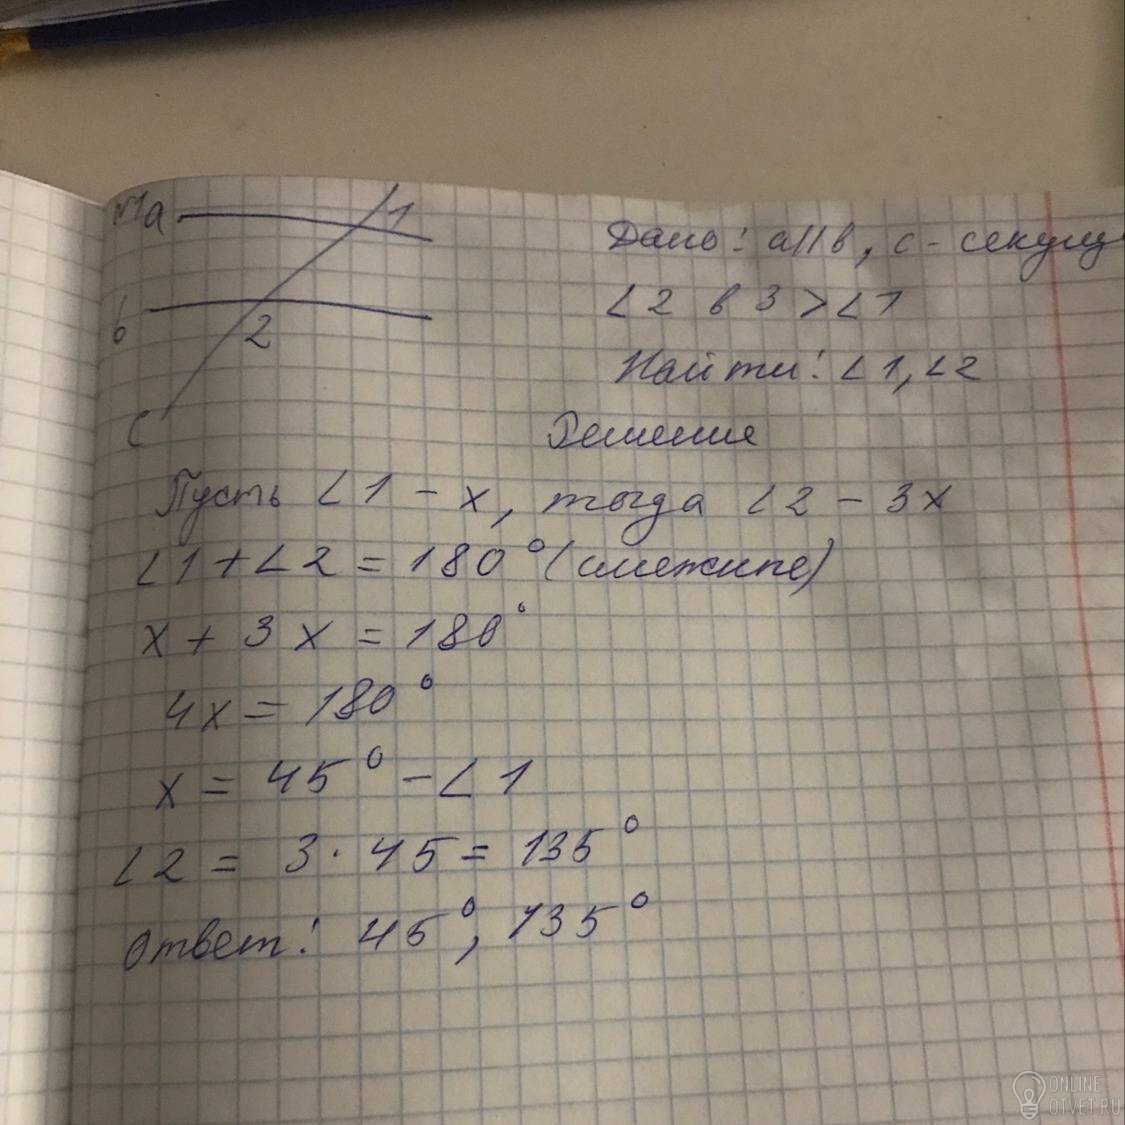 №1 a 1
Дано: a||b, c - секущ
b 2
∠2 в 3 > ∠1
Найти: ∠1, ∠2
c
Решение
Пусть ∠1 - x, тогда ∠2 - 3x
∠1 + ∠2 = 180° (смежные)
x + 3x = 180°
4x = 180°
x = 45° - ∠1
∠2 = 3 · 45 = 135°
Ответ: 45°, 135°
ONLINE
OTVET.RU